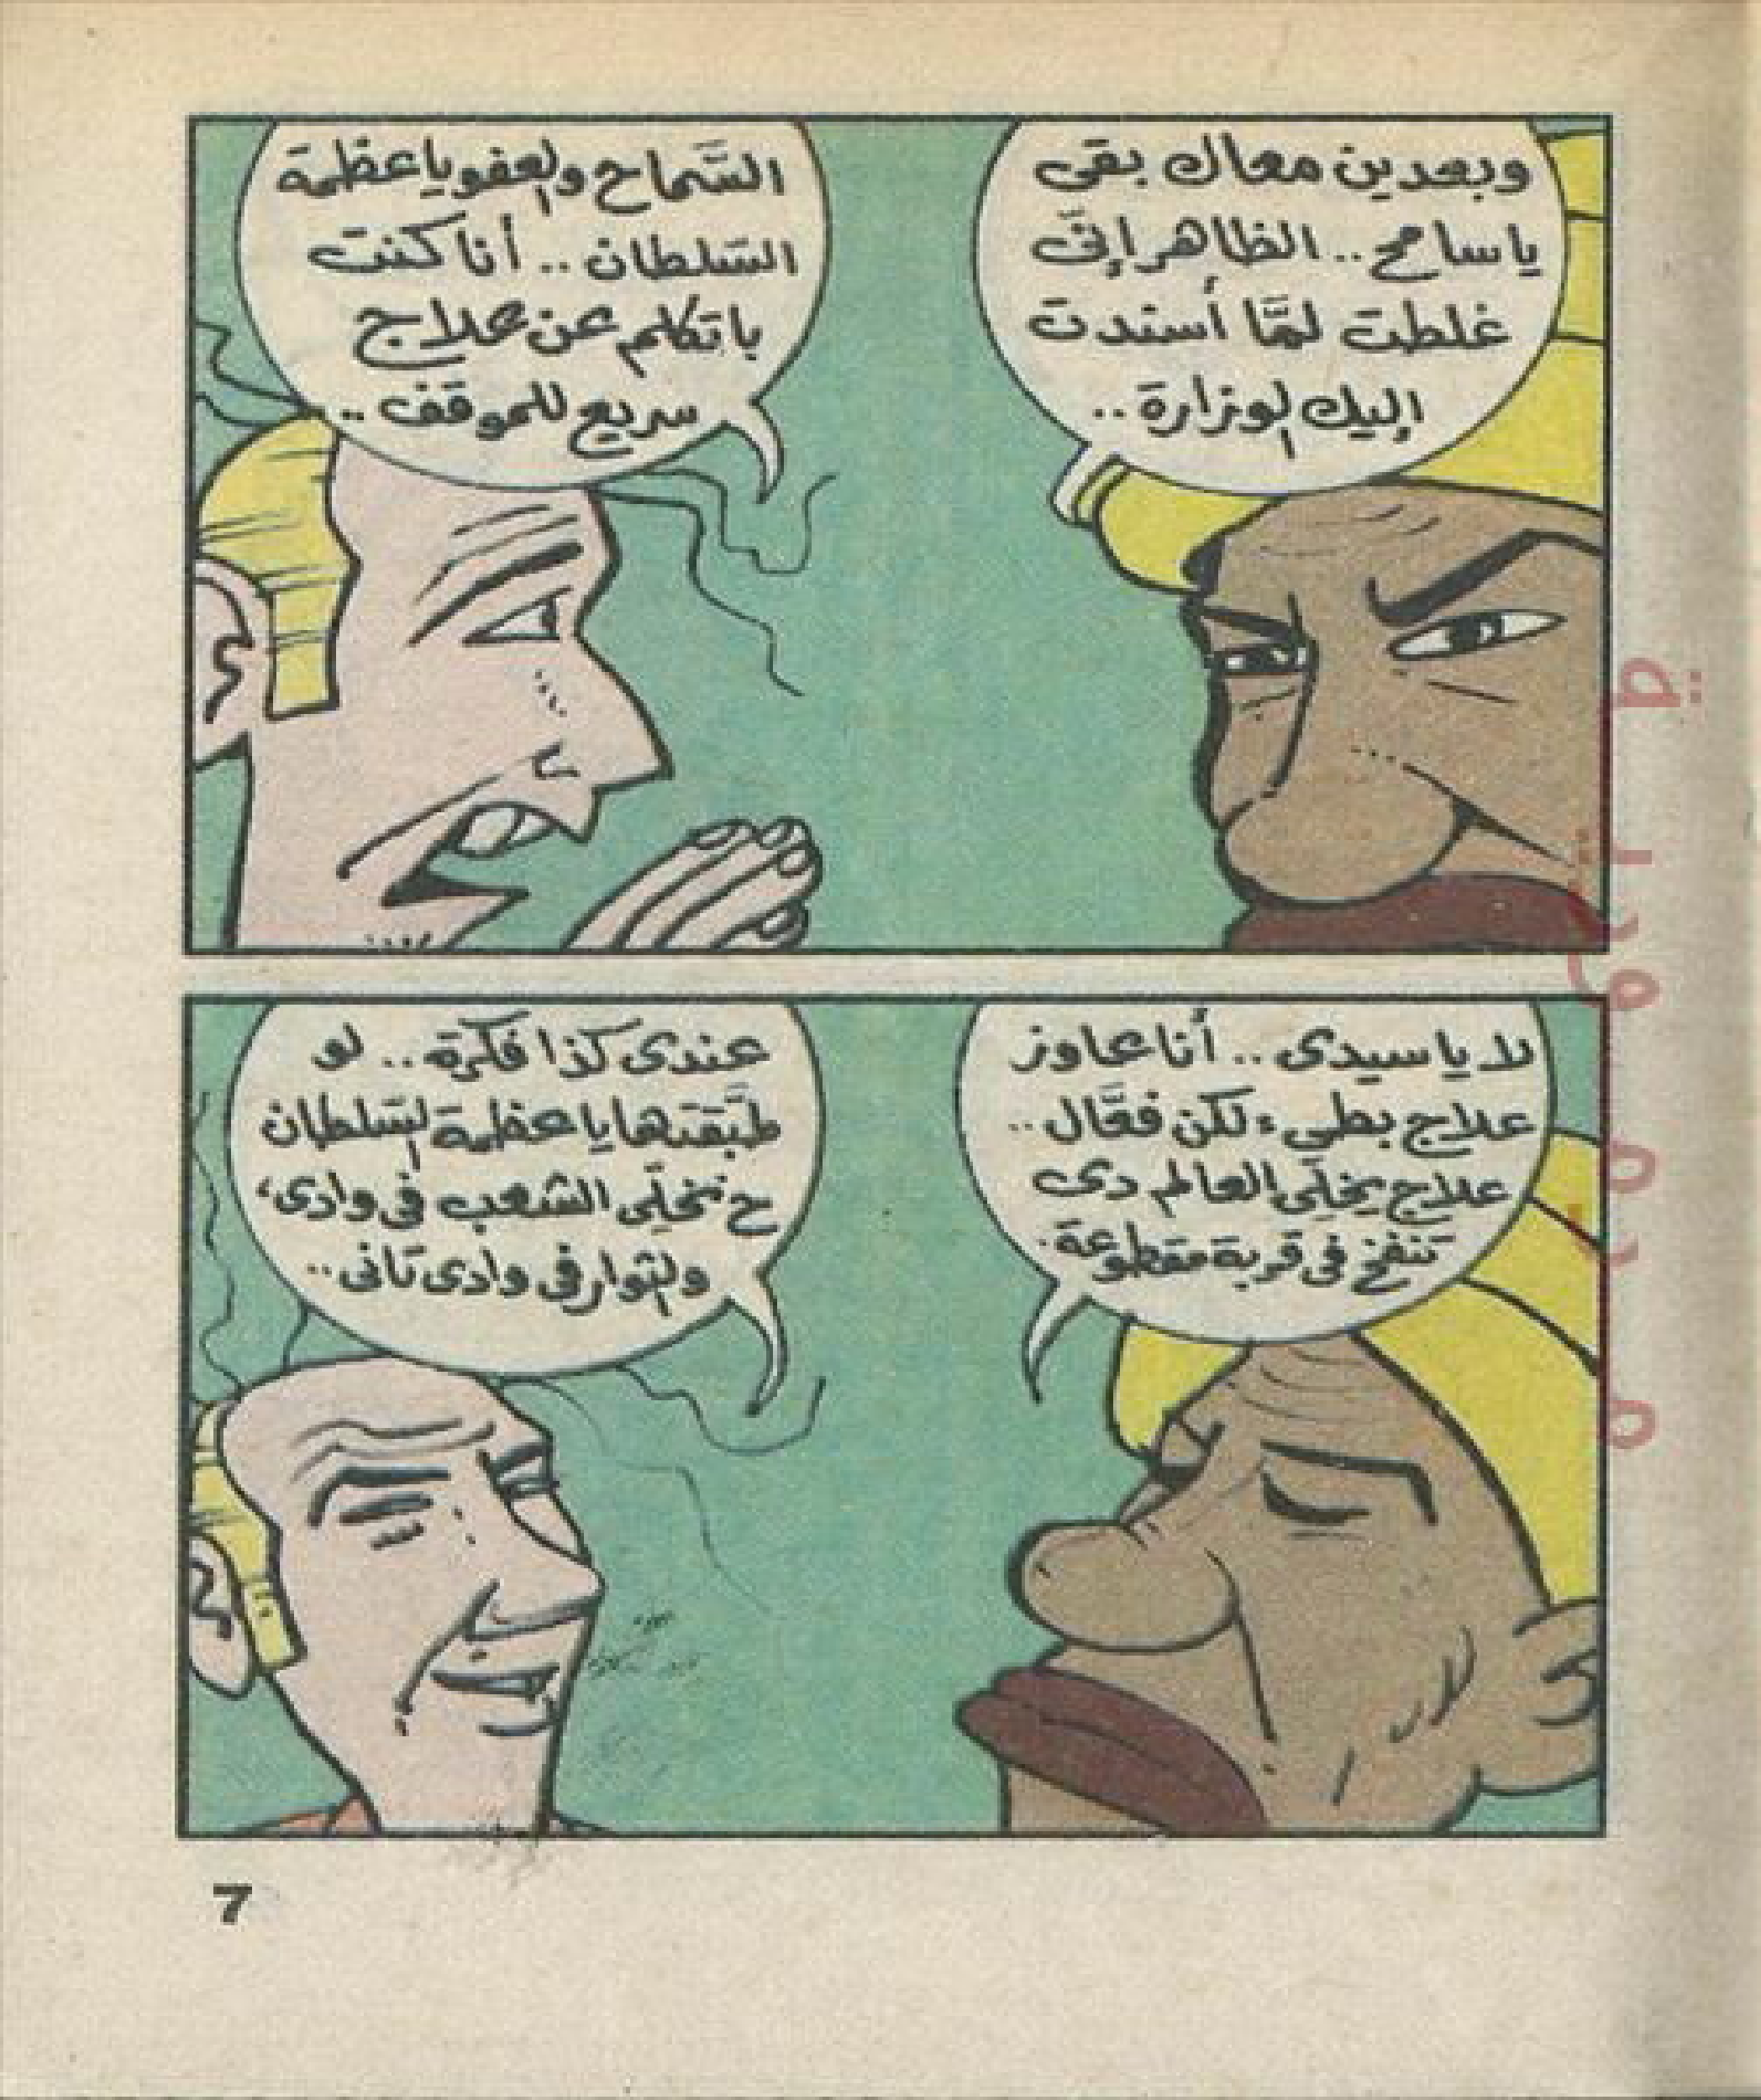 وبعدين معاك بقى
ياسامح.. الظاهر إنّى
غلطت لمَّا أسندت
إليك الوزارة..
السَّماح والعفو ياعظمة
السّلطان.. أنا كنت
باتكلم عن علاج
سريع للموقف..
لا ياسيدى.. أنا عاوز
علاج بطىء لكن فعَّال..
علاج يخلِّى العالم دى
تنفخ فى قربة مقطوعة.
عندى كذا فكرة.. لو
طبَّقتها ياعظمة السّلطان
ح نخلِّى الشعب فى وادى،
والثوار فى وادى تانى..
7